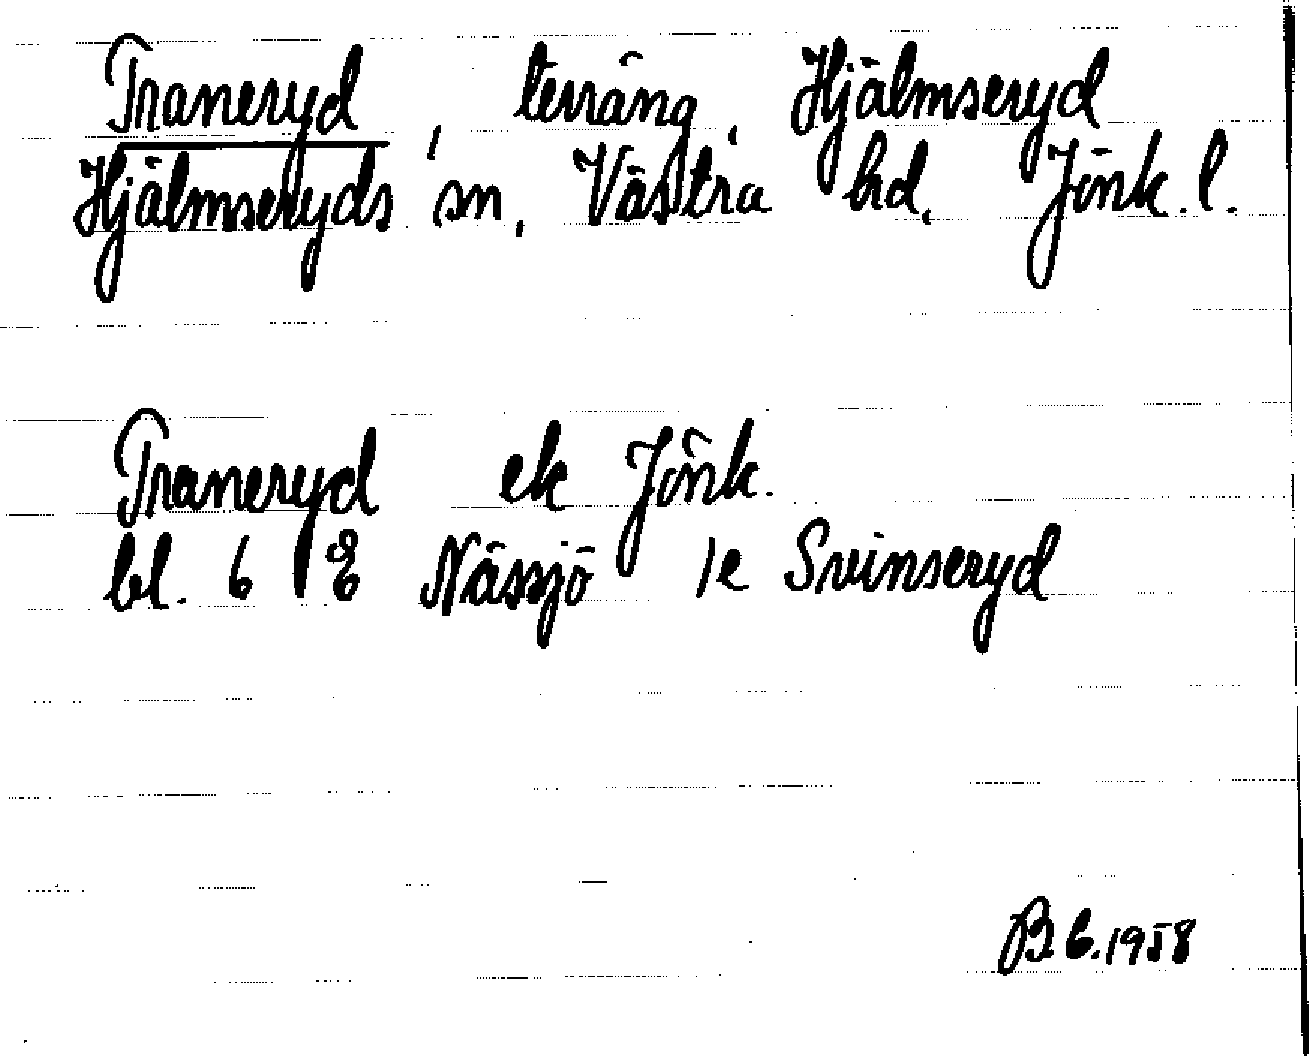 Traneryd, terräng, Hjälmseryd
Hjälmseryds sn, Västra hd. Jönk. l.
Traneryd ek Jönk.
bl. 6 E Nässjö 1e Svinseryd
1958